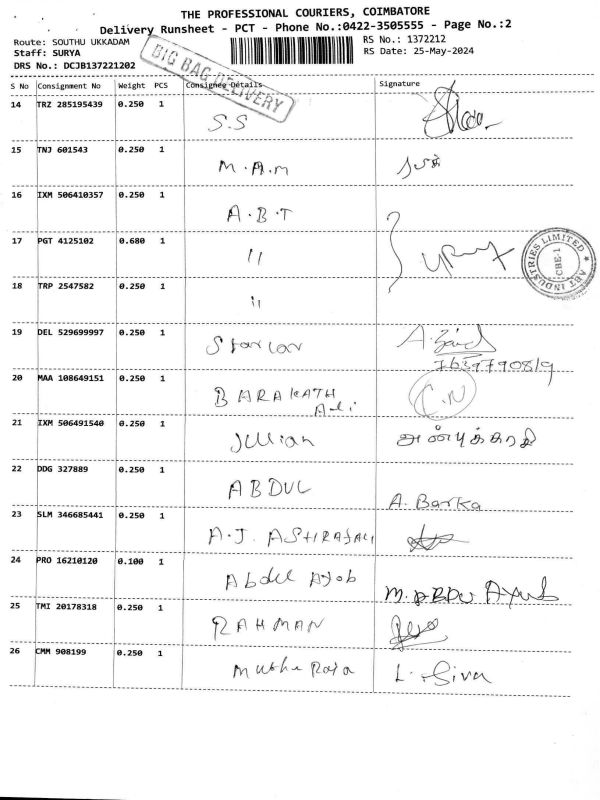 THE PROFESSIONAL COURIERS, COIMBATORE
Delivery Runsheet - PCT - Phone No.:0422-3505555 - Page No.:2
Route: SOUTHU UKKADAM
RS No.: 1372212
Staff: SURYA
RS Date: 25-May-2024
DRS No.: DCJB137221202
BIG BAG DELIVERY
S No Consignment No Weight PCS Consignee Details Signature
14 TRZ 285195439 0.250 1 S.S
15 TNJ 601543 0.250 1 M.A.M
16 IXM 506410357 0.250 1 A.B.T
17 PGT 4125102 0.680 1 "
ABT INDUSTRIES LIMITED
CBE-1
18 TRP 2547582 0.250 1 "
19 DEL 529699997 0.250 1 Starcar
20 MAA 108649151 0.250 1 BARAKATH Ali C.N
21 IXM 506491540 0.250 1 Jullian
22 DDG 327889 0.250 1 ABDUL A. Barka
23 SLM 346685441 0.250 1 A.J.
24 PRO 16210120 0.100 1 Abdul Ayob
25 TMI 20178318 0.250 1 RAHMAN
26 CMM 908199 0.250 1 L. Siva